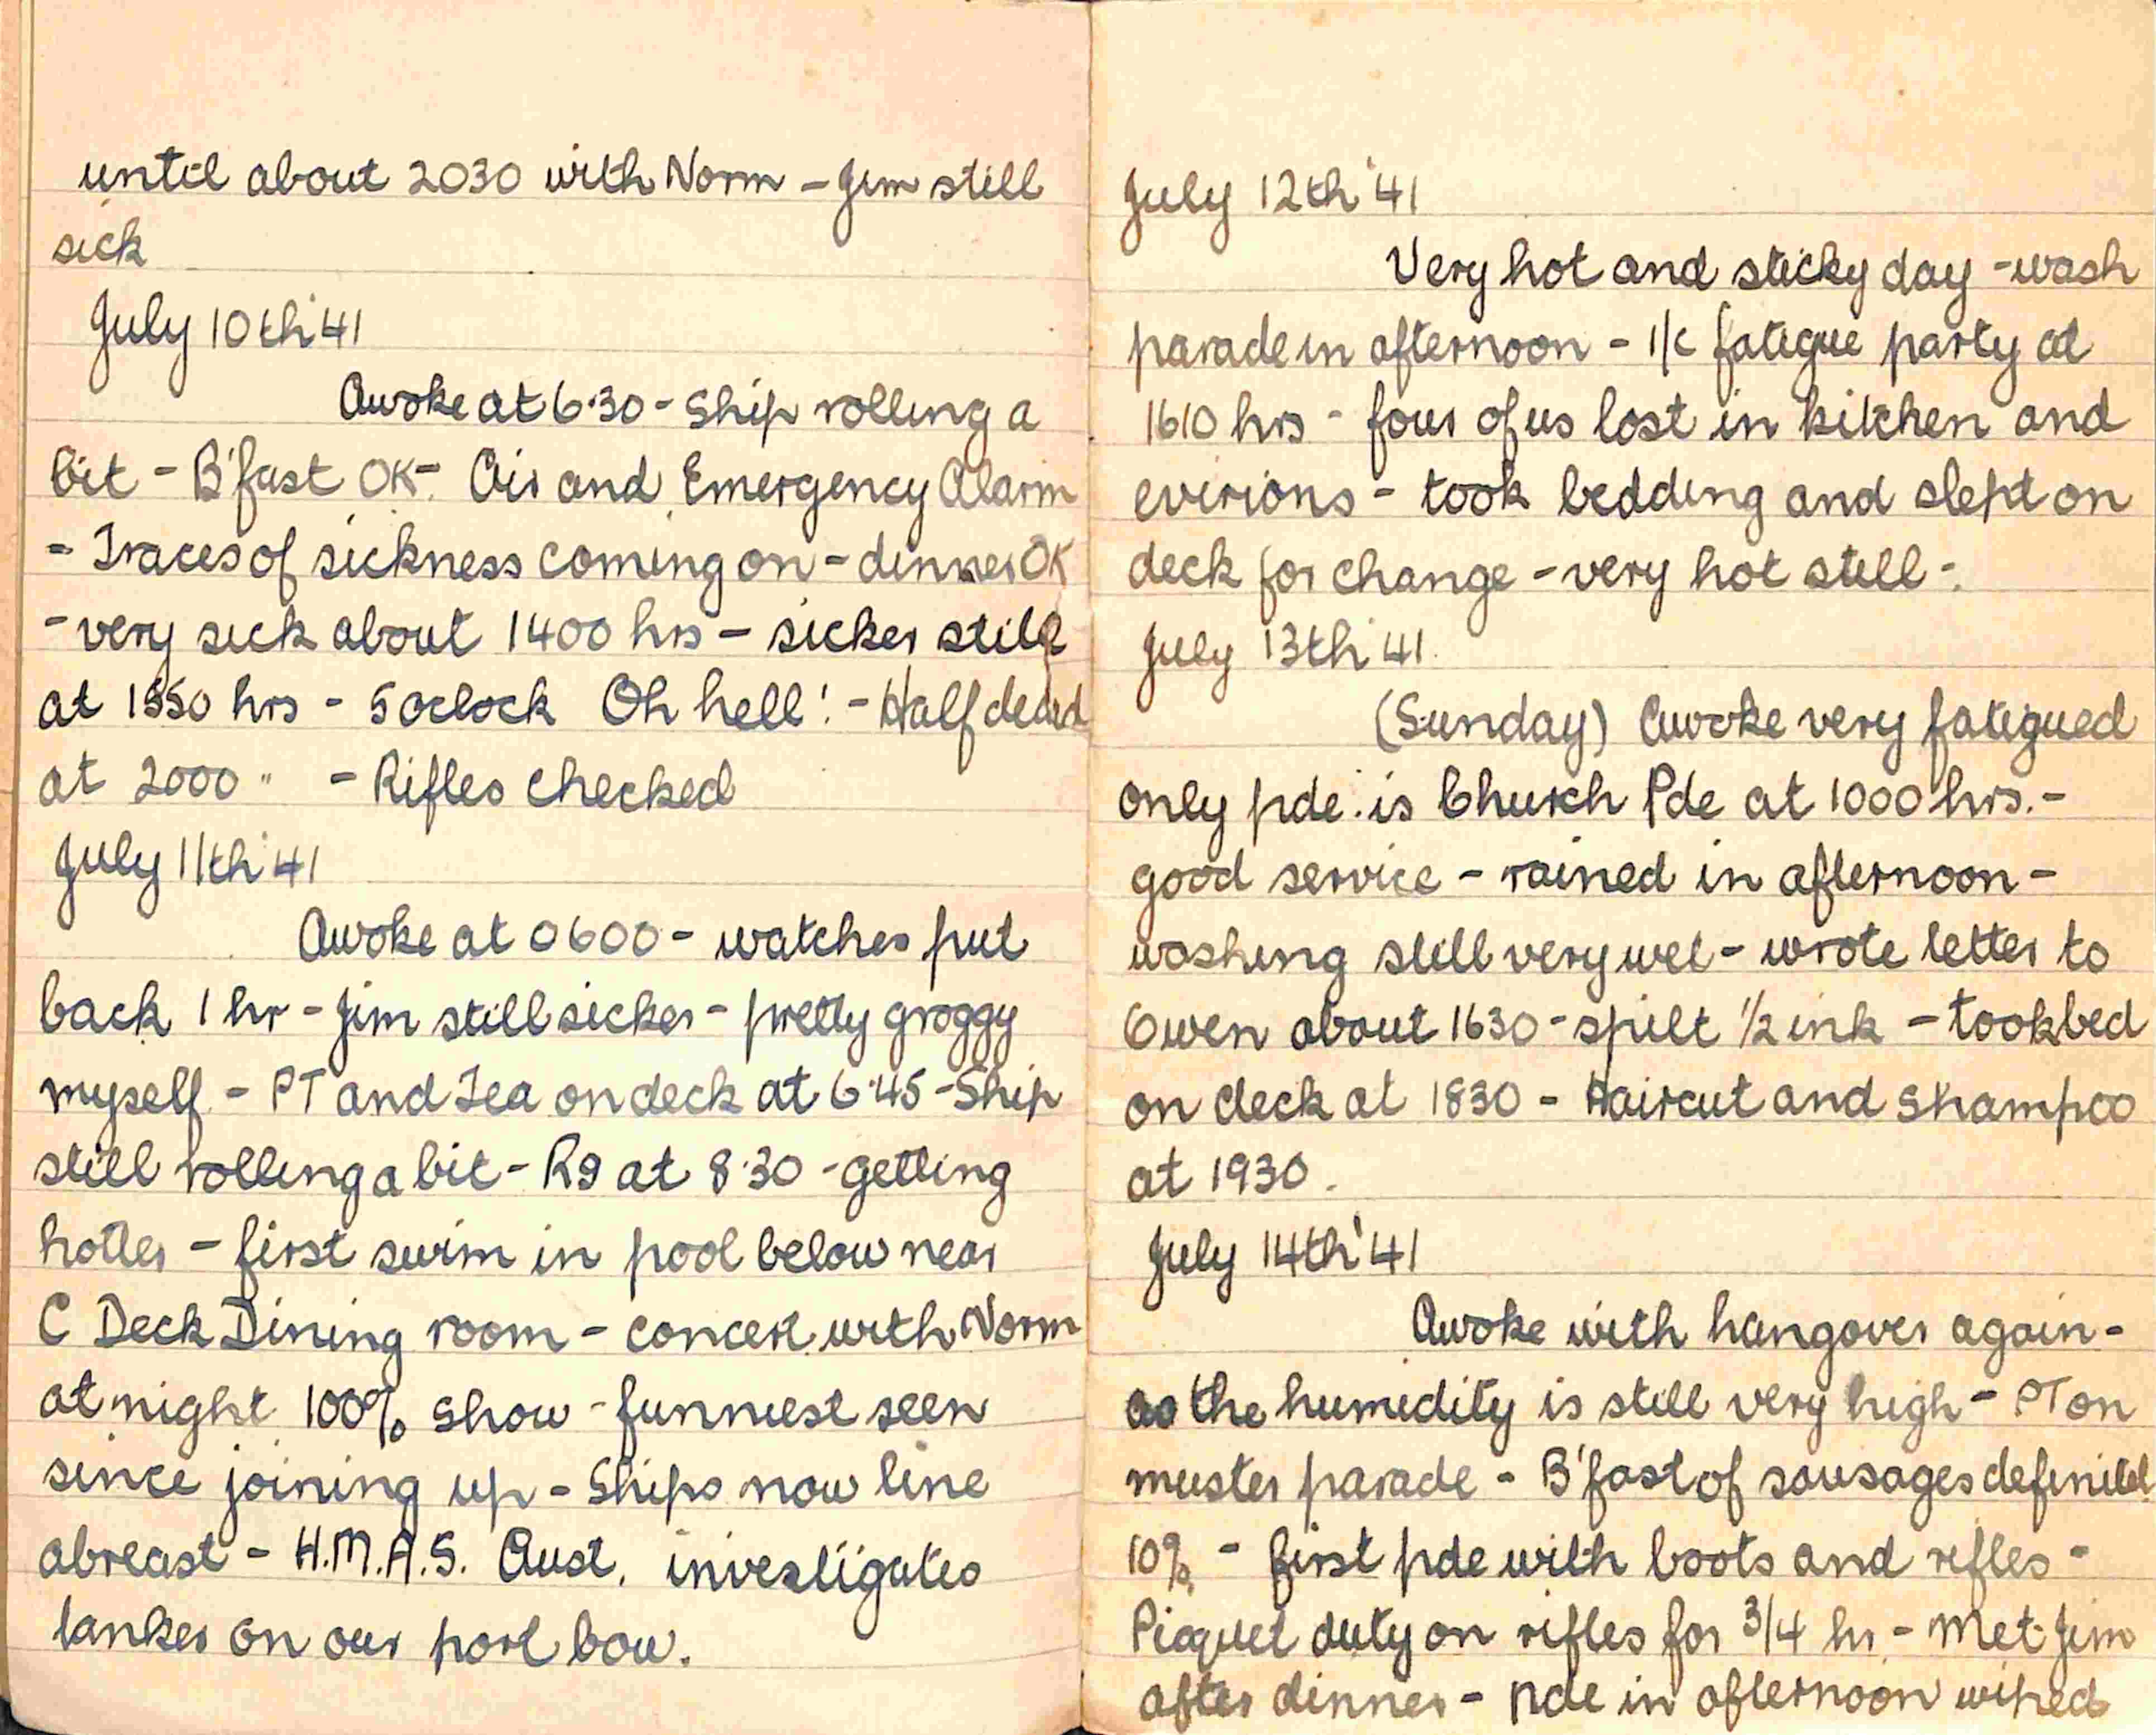 until about 2030 with Norm – Jim still
sick
July 10th '41
Awoke at 6.30 – Ship rolling a
bit – B'fast OK – Air and Emergency Alarm
– Traces of sickness coming on – dinner OK
– very sick about 1400 hrs – sicker still
at 1550 hrs – 5 oclock Oh hell! – Half dead
at 2000 " – Rifles checked
July 11th '41
Awoke at 0600 – watches put
back 1 hr – Jim still sicker – pretty groggy
myself – PT and Tea on deck at 6.45 – Ship
still rolling a bit – R9 at 8.30 – getting
hotter – first swim in pool below near
C Deck Dining room – concert with Norm
at night 100% show – funniest seen
since joining up – Ships now line
abreast – H.M.A.S. Aust. investigates
tanker on our port bow.
July 12th '41
Very hot and sticky day – wash
parade in afternoon – 1/c fatigue party at
1610 hrs – four of us lost in kitchen and
evirions – took bedding and slept on
deck for change – very hot still –.
July 13th '41.
(Sunday) Awoke very fatigued
only pde. is Church Pde at 1000 hrs. –
good service – rained in afternoon –
washing still very wet – wrote letter to
Owen about 1630 – spilt 1/2 ink – took bed
on deck at 1830 – Haircut and Shampoo
at 1930.
July 14th '41
Awoke with hangover again –
as the humidity is still very high – PT on
muster parade – B'fast of sausages
10% – first pde with boots and rifles –
Picquet duty on rifles for 3/4 hr – Met Jim
after dinner – pde in afternoon wiped